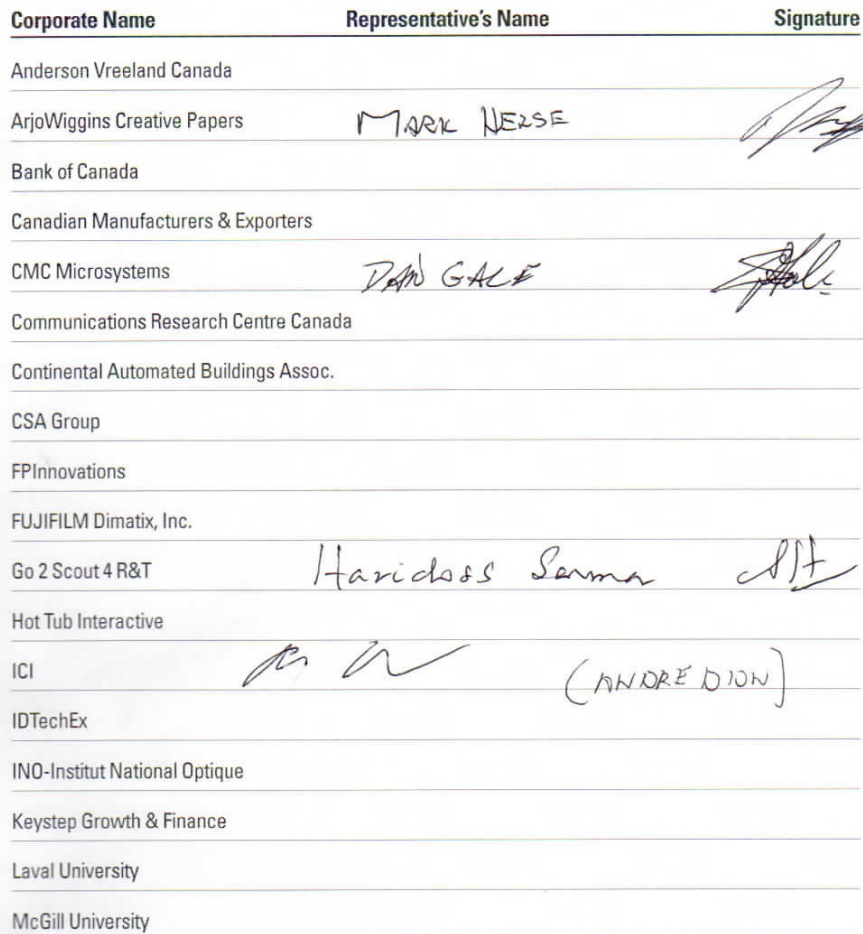 Corporate Name Representative's Name Signature
Anderson Vreeland Canada
ArjoWiggins Creative Papers MARK
Bank of Canada
Canadian Manufacturers & Exporters
CMC Microsystems DAN GALE
Communications Research Centre Canada
Continental Automated Buildings Assoc.
CSA Group
FPInnovations
FUJIFILM Dimatix, Inc.
Go 2 Scout 4 R&T Haridoss
Hot Tub Interactive
ICI (ANDRE DION)
IDTechEx
INO-Institut National Optique
Keystep Growth & Finance
Laval University
McGill University